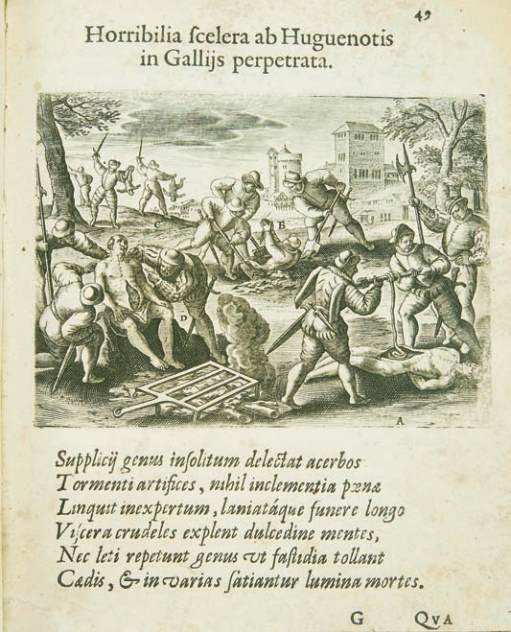 49
Horribilia ſcelera ab Huguenotis
in Gallijs perpetrata.
C
B
D
A
Supplicij genus inſolitum delectat acerbos
Tormenti artifices, nihil inclementia pœnæ
Linquit inexpertum, laniatáque funere longo
Viſcera crudeles explent dulcedine mentes,
Nec leti repetunt genus vt faſtidia tollant
Cædis, & in varias ſatiantur lumina mortes.
G QVA